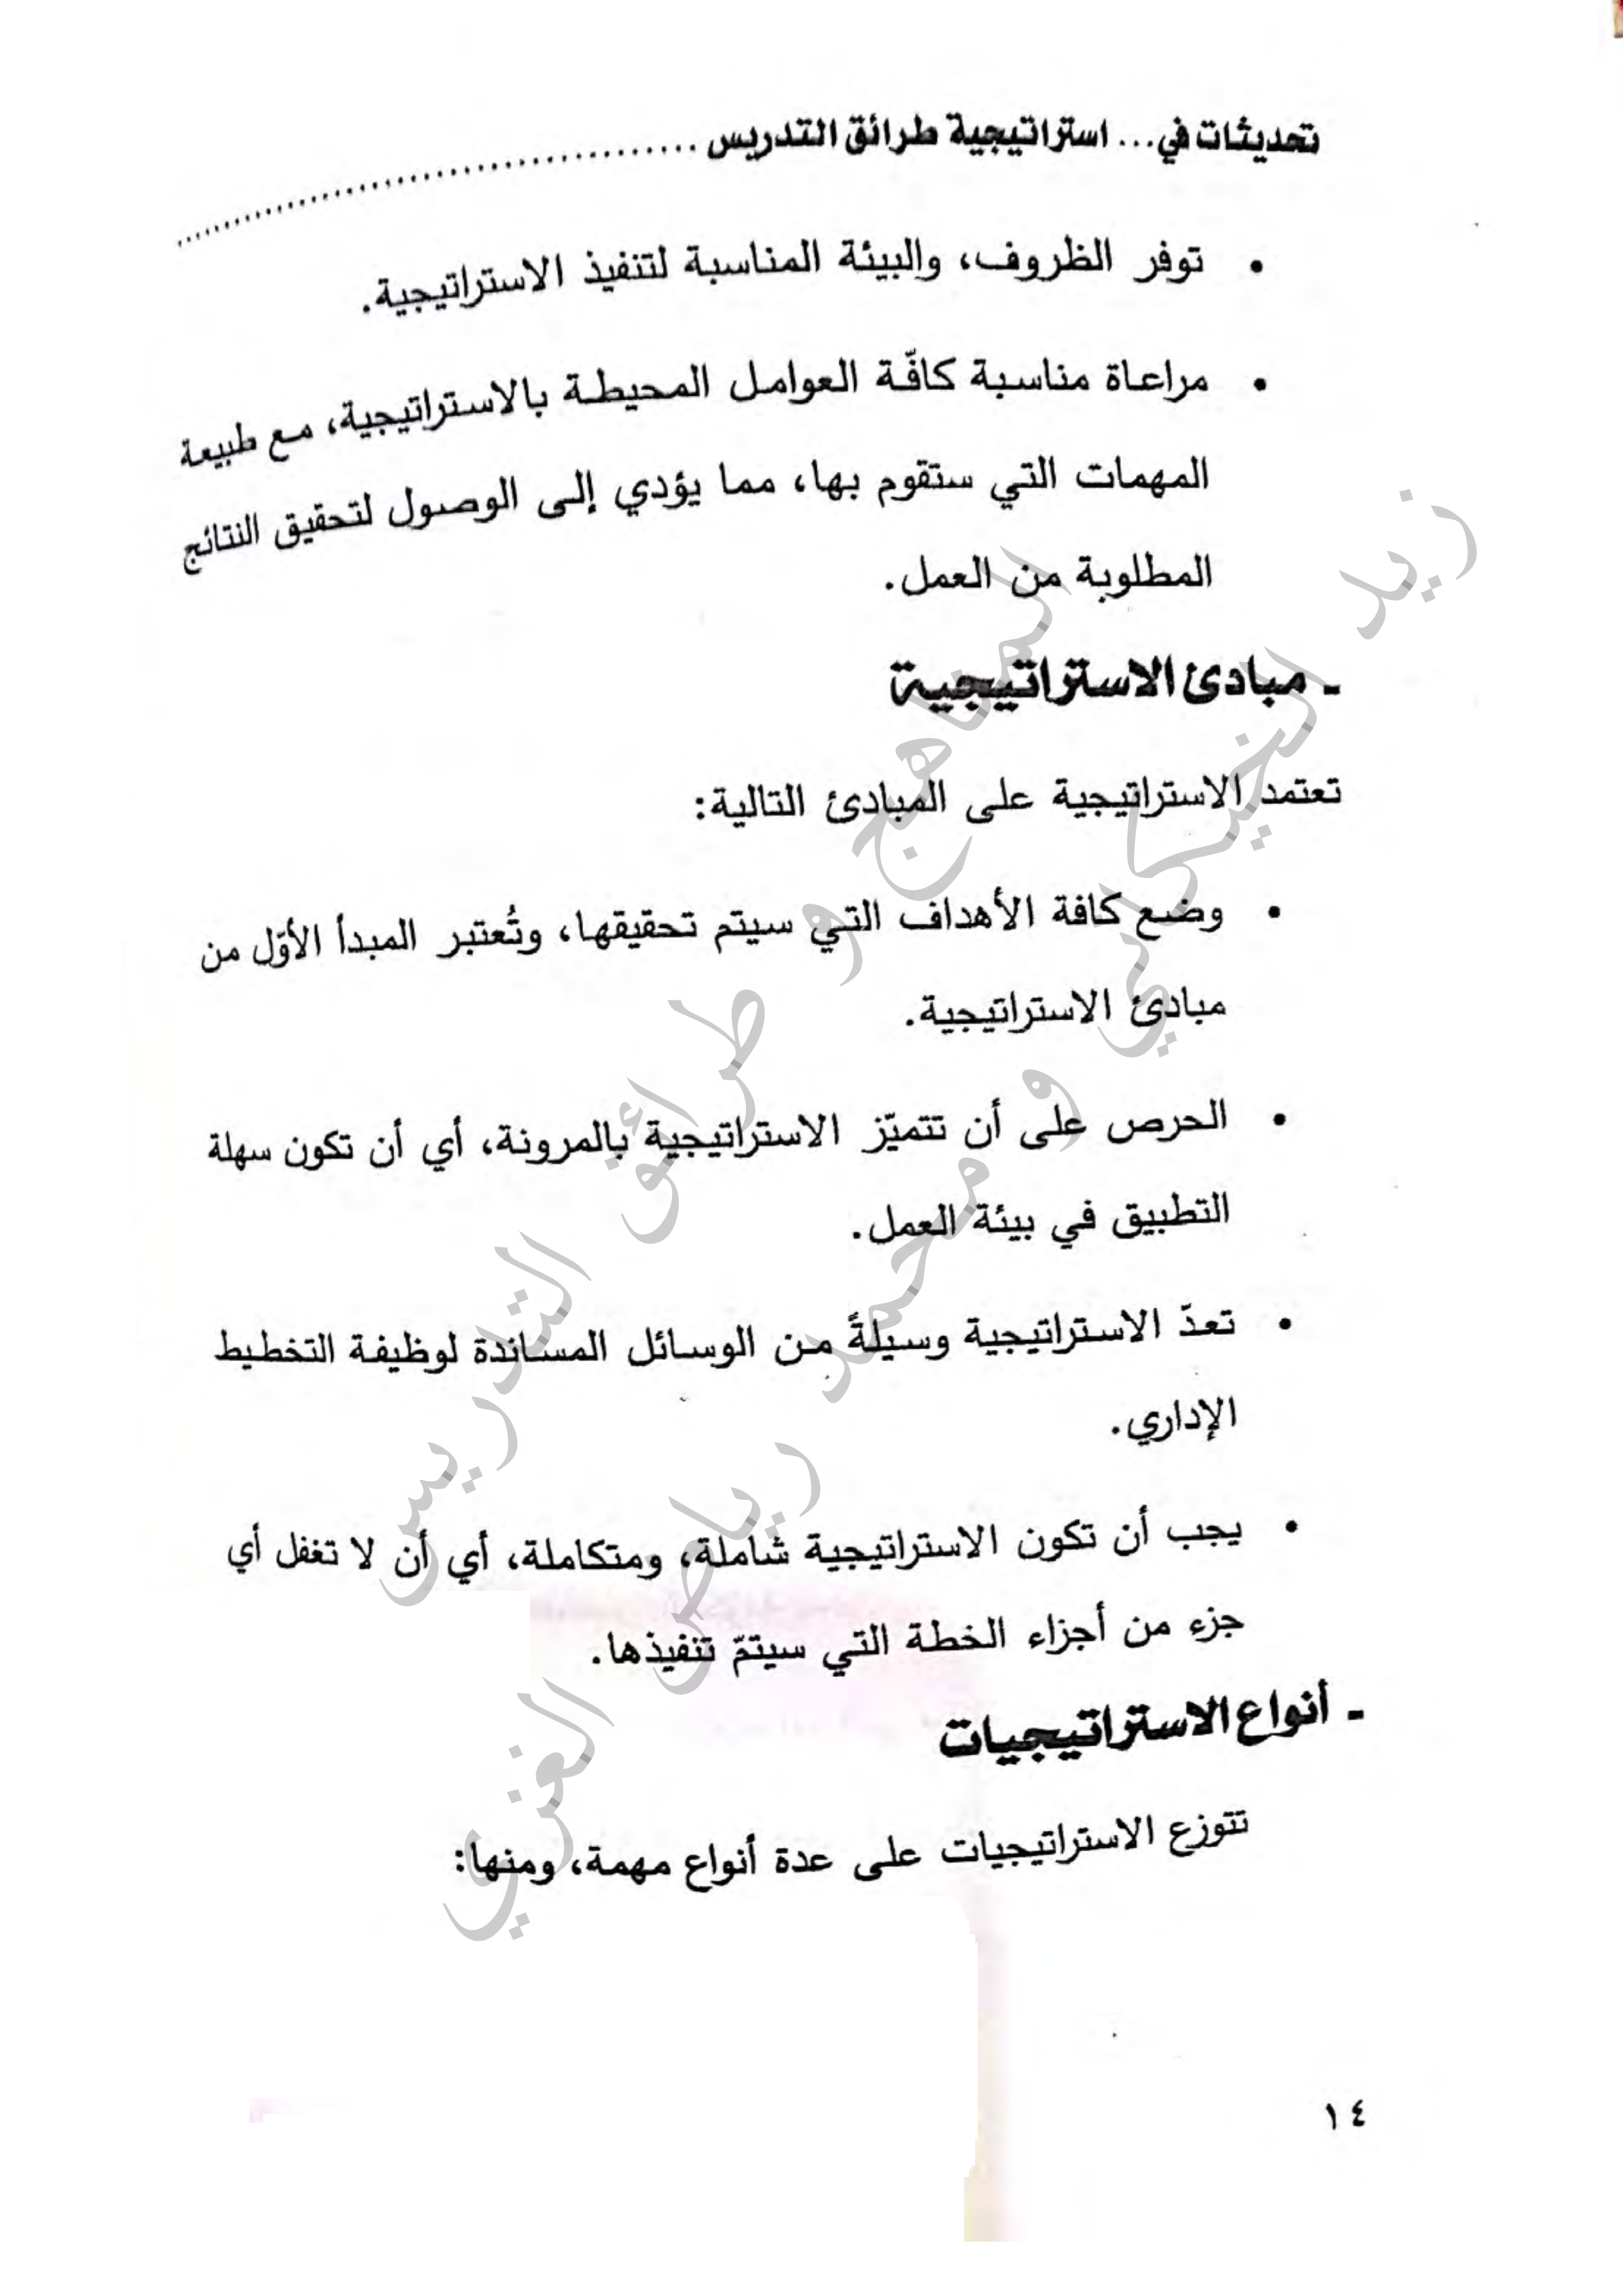 تحديثات في... استراتيجية طرائق التدريس ........................................
• توفر الظروف، والبيئة المناسبة لتنفيذ الاستراتيجية.
• مراعاة مناسبة كافّة العوامل المحيطة بالاستراتيجية، مع طبيعة
المهمات التي ستقوم بها، مما يؤدي إلى الوصول لتحقيق النتائج
المطلوبة من العمل.
- مبادئ الاستراتيجية
تعتمد الاستراتيجية على المبادئ التالية:
• وضع كافة الأهداف التي سيتم تحقيقها، وتُعتبر المبدأ الأوّل من
مبادئ الاستراتيجية.
• الحرص على أن تتميّز الاستراتيجية بالمرونة، أي أن تكون سهلة
التطبيق في بيئة العمل.
• تعدّ الاستراتيجية وسيلةً من الوسائل المساندة لوظيفة التخطيط
الإداري.
• يجب أن تكون الاستراتيجية شاملة، ومتكاملة، أي أن لا تغفل أي
جزء من أجزاء الخطة التي سيتمّ تنفيذها.
- أنواع الاستراتيجيات
تتوزع الاستراتيجيات على عدة أنواع مهمة، ومنها:
١٤
المناهج و طرائق التدريس
زيد الخيكاني و محمد رياض الغزي